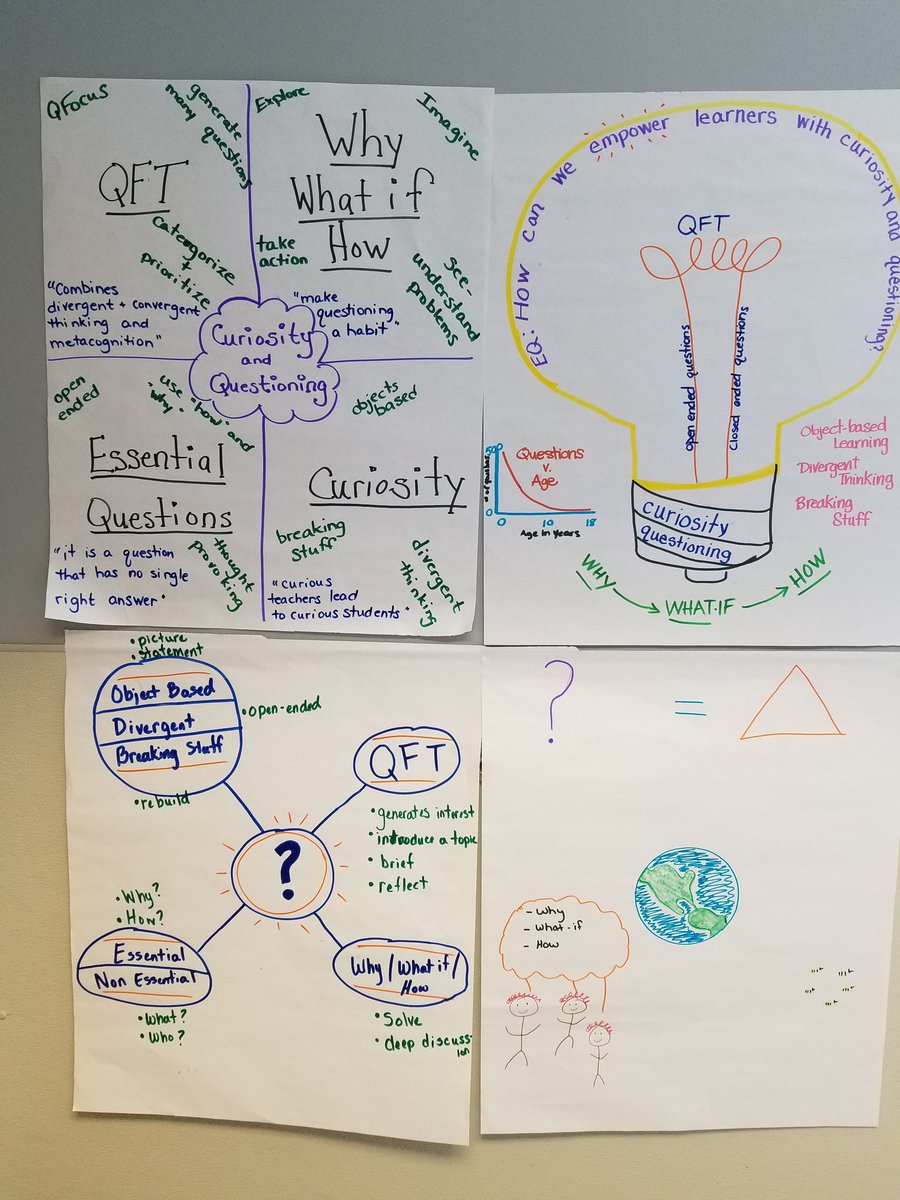 QFocus
generate
many questions
QFT
categorize
+
prioritize
"Combines
divergent + convergent
thinking and
metacognition"
Explore
Imagine
Why
What if
How
take
action
see-
understand
problems
"make
questioning
a habit"
Curiosity
and
Questioning
open
ended
use "how" and
"why"
Essential
Questions
"it is a question
that has no single
right answer"
thought
provoking
objects
based
Curiosity
breaking
stuff
divergent
thinking
"curious
teachers lead
to curious students"
EQ: How can we empower learners with curiosity and questioning?
QFT
open ended questions
closed ended questions
Questions
v.
Age
50
0
# of questions
0 10 18
Age in years
curiosity
questioning
Object-based
Learning
Divergent
Thinking
Breaking
Stuff
WHY
WHAT-IF
HOW
• picture
• statement
Object Based
Divergent
Breaking Stuff
• open-ended
• rebuild
QFT
• generates interest
• introduce a topic
• brief
• reflect
?
• Why?
• How?
Essential
Non Essential
• What?
• Who?
Why/What if/
How
• Solve
• deep discuss-
ion
? =
- Why
- What-if
- How